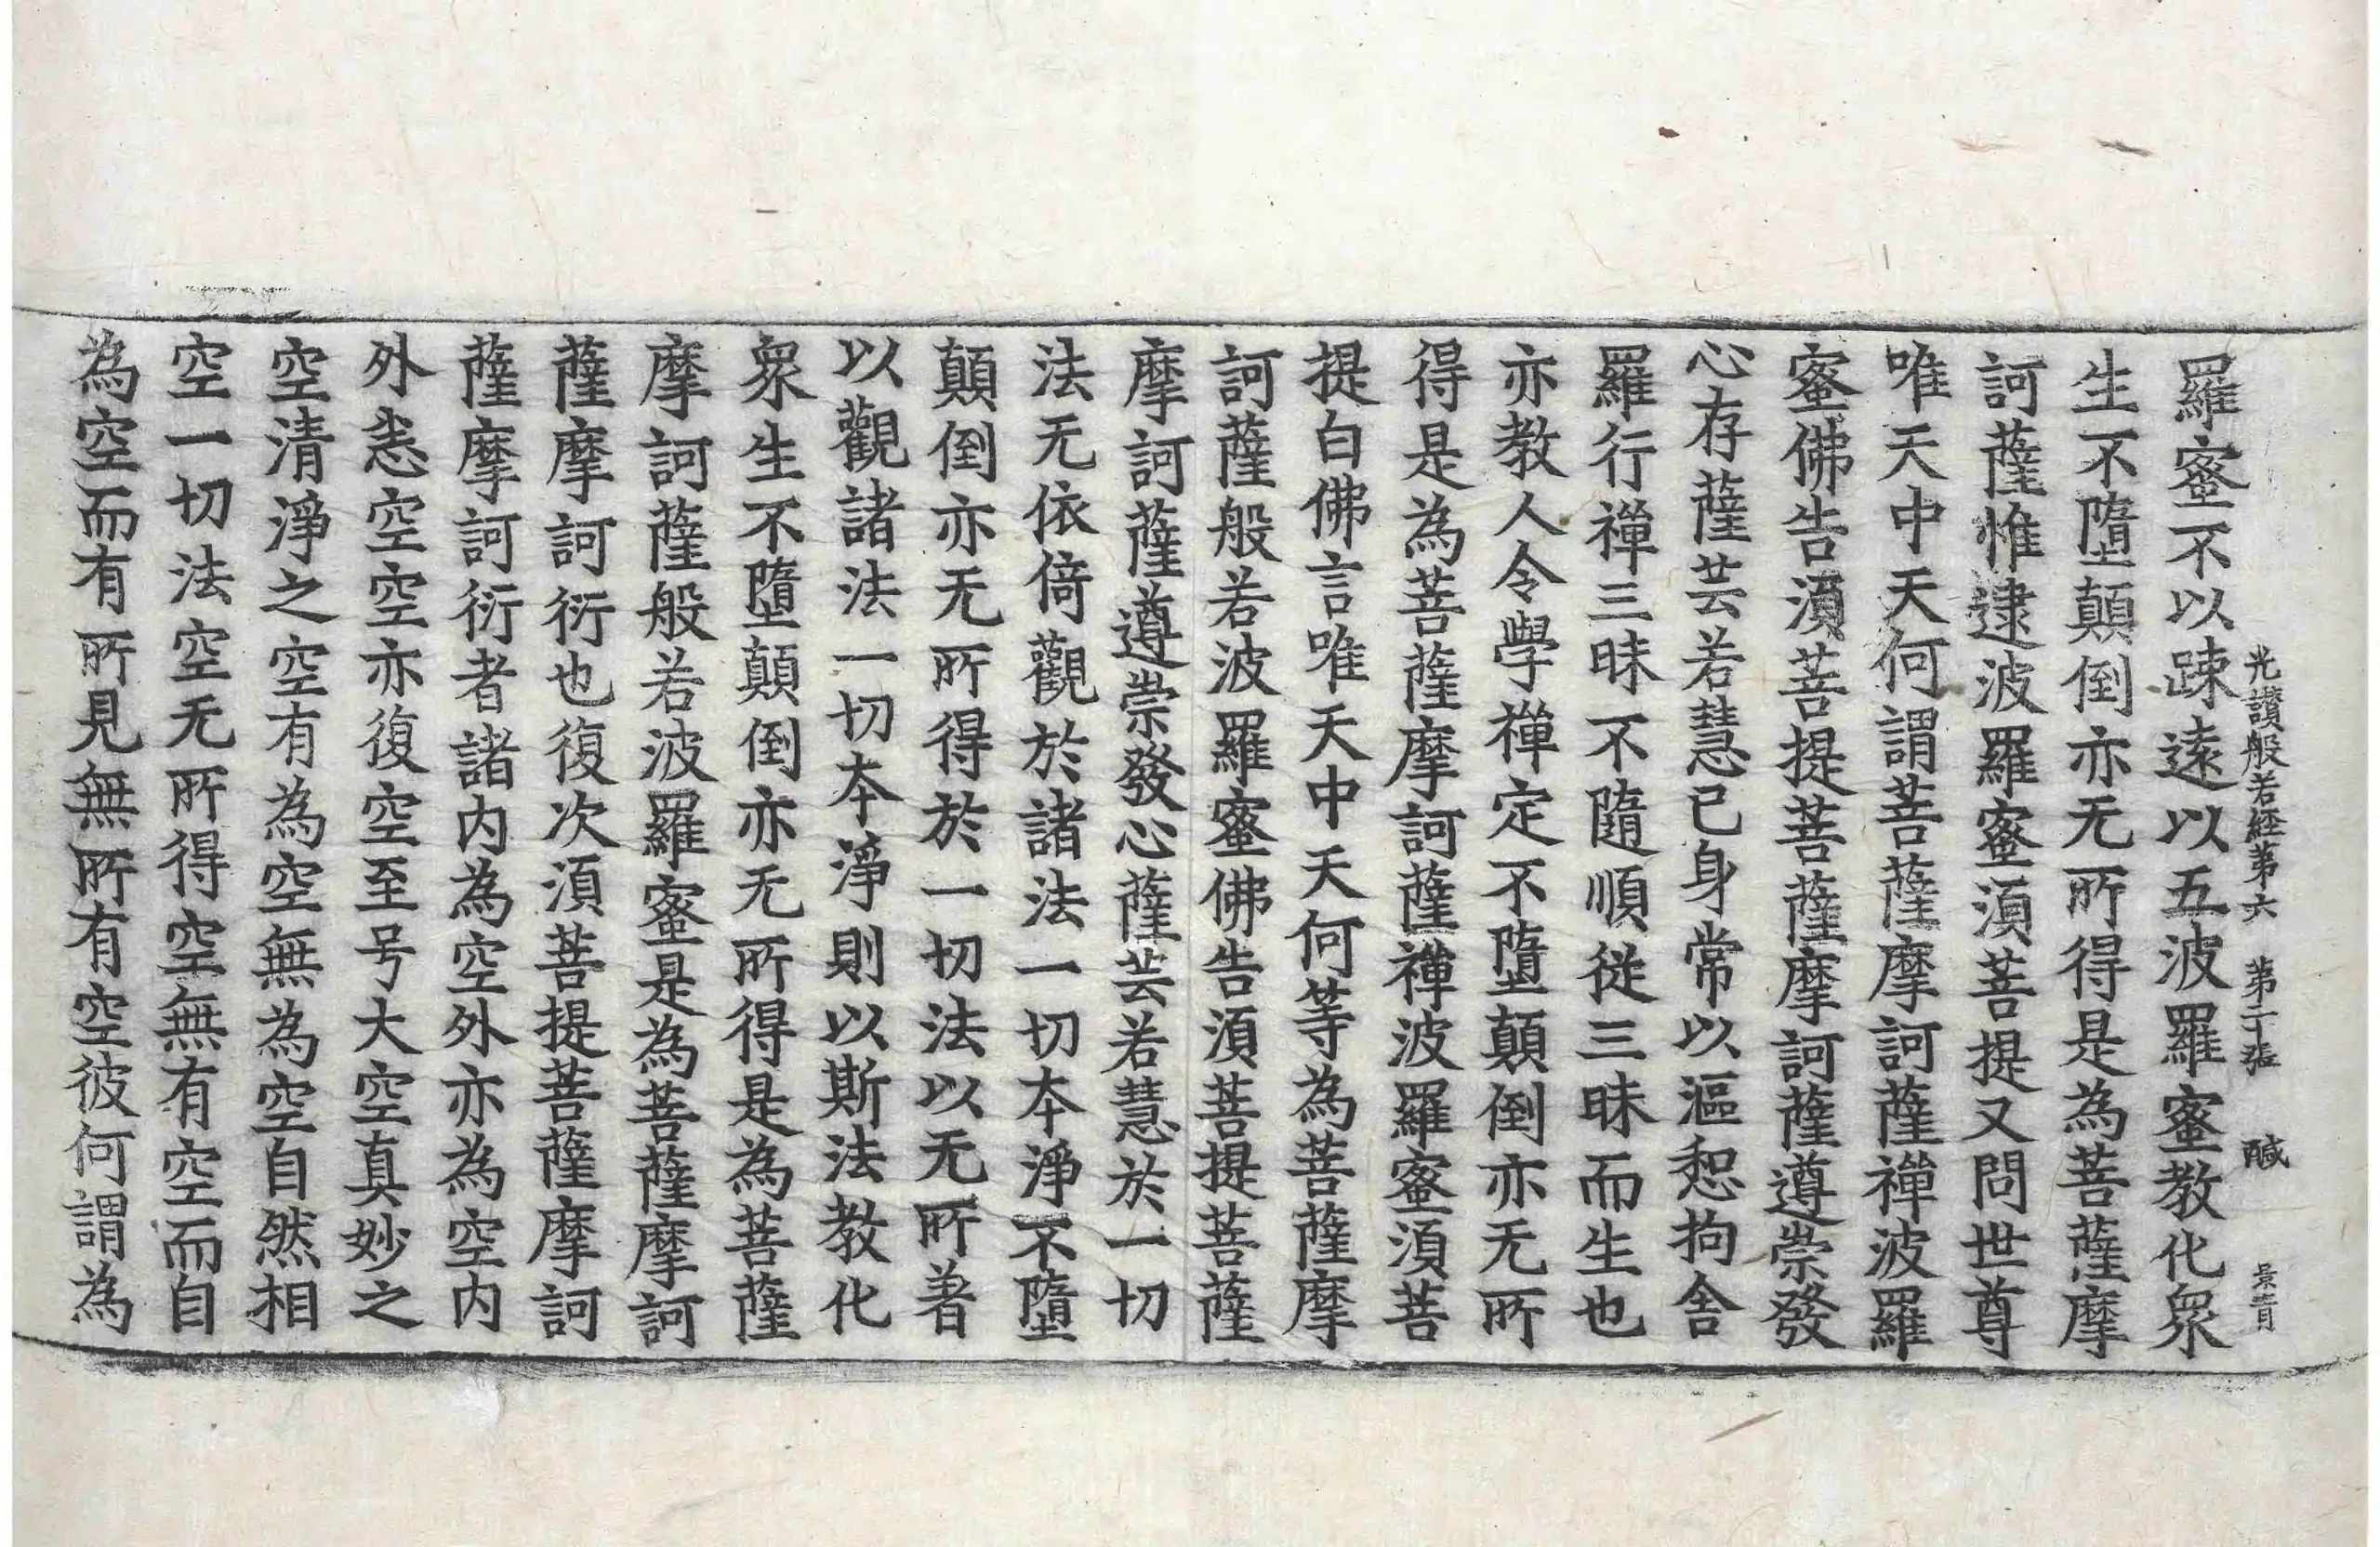 光讚般若經第六 第二十張 鹹 景青
羅蜜不以踈遠以五波羅蜜教化衆
生不墮顛倒亦无所得是為菩薩摩
訶薩惟逮波羅蜜湏菩提又問世尊
唯天中天何謂菩薩摩訶薩禪波羅
蜜佛告湏菩提菩薩摩訶薩遵崇發
心存薩芸若慧已身常以漚惒拘舍
羅行禪三昧不隨順從三昧而生也
亦教人令學禪定不墮顛倒亦无所
得是為菩薩摩訶薩禪波羅蜜湏菩
提白佛言唯天中天何等為菩薩摩
訶薩般若波羅蜜佛告湏菩提菩薩
摩訶薩遵崇發心薩芸若慧於一切
法无依倚觀於諸法一切本淨不墮
顛倒亦无所得於一切法以无所著
以觀諸法一切本淨則以斯法教化
衆生不墮顛倒亦无所得是為菩薩
摩訶薩般若波羅蜜是為菩薩摩訶
薩摩訶衍也復次湏菩提菩薩摩訶
薩摩訶衍者諸内為空外亦為空内
外恚空空亦復空至号大空真妙之
空清淨之空有為空無為空自然相
空一切法空无所得空無有空而自
為空而有所見無所有空彼何謂為